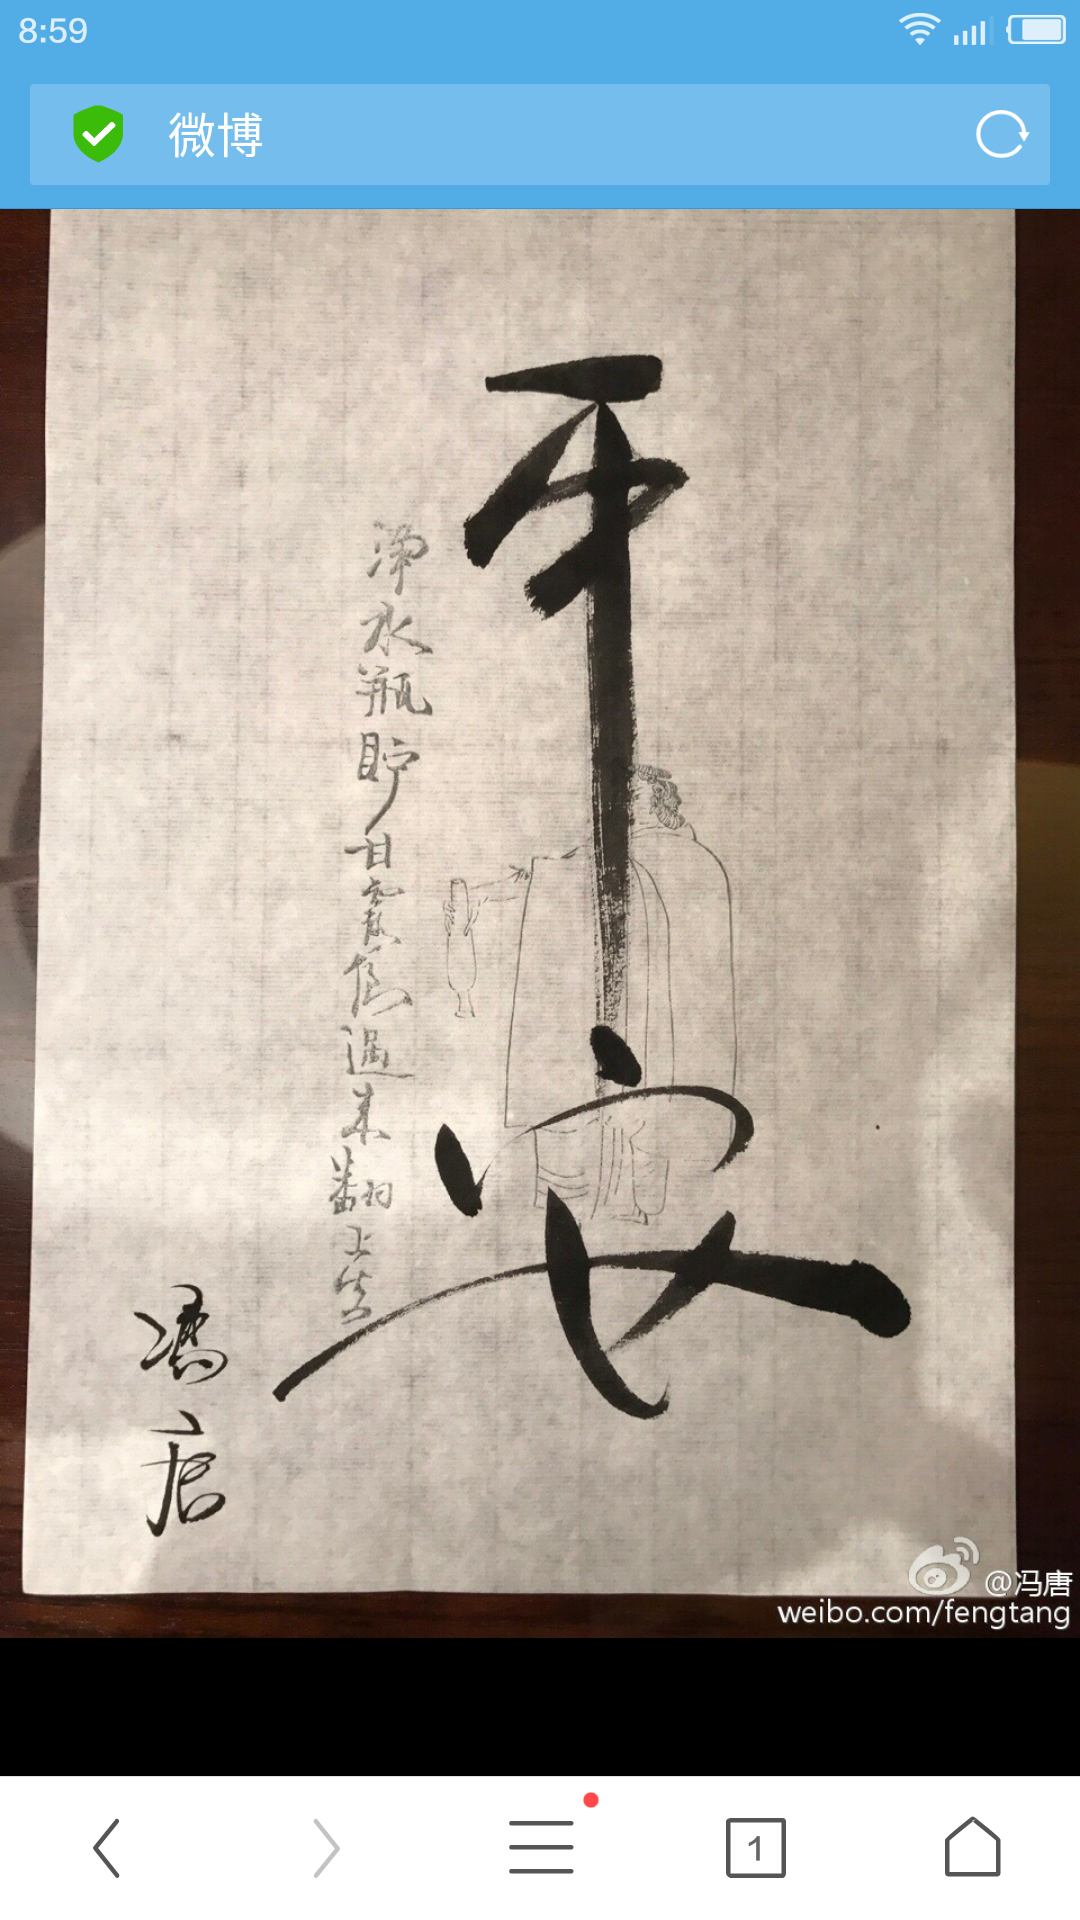 8:59
微博
平安
淨水瓶貯甘露偶過來翻上生
馮唐
@冯唐
weibo.com/fengtang
1